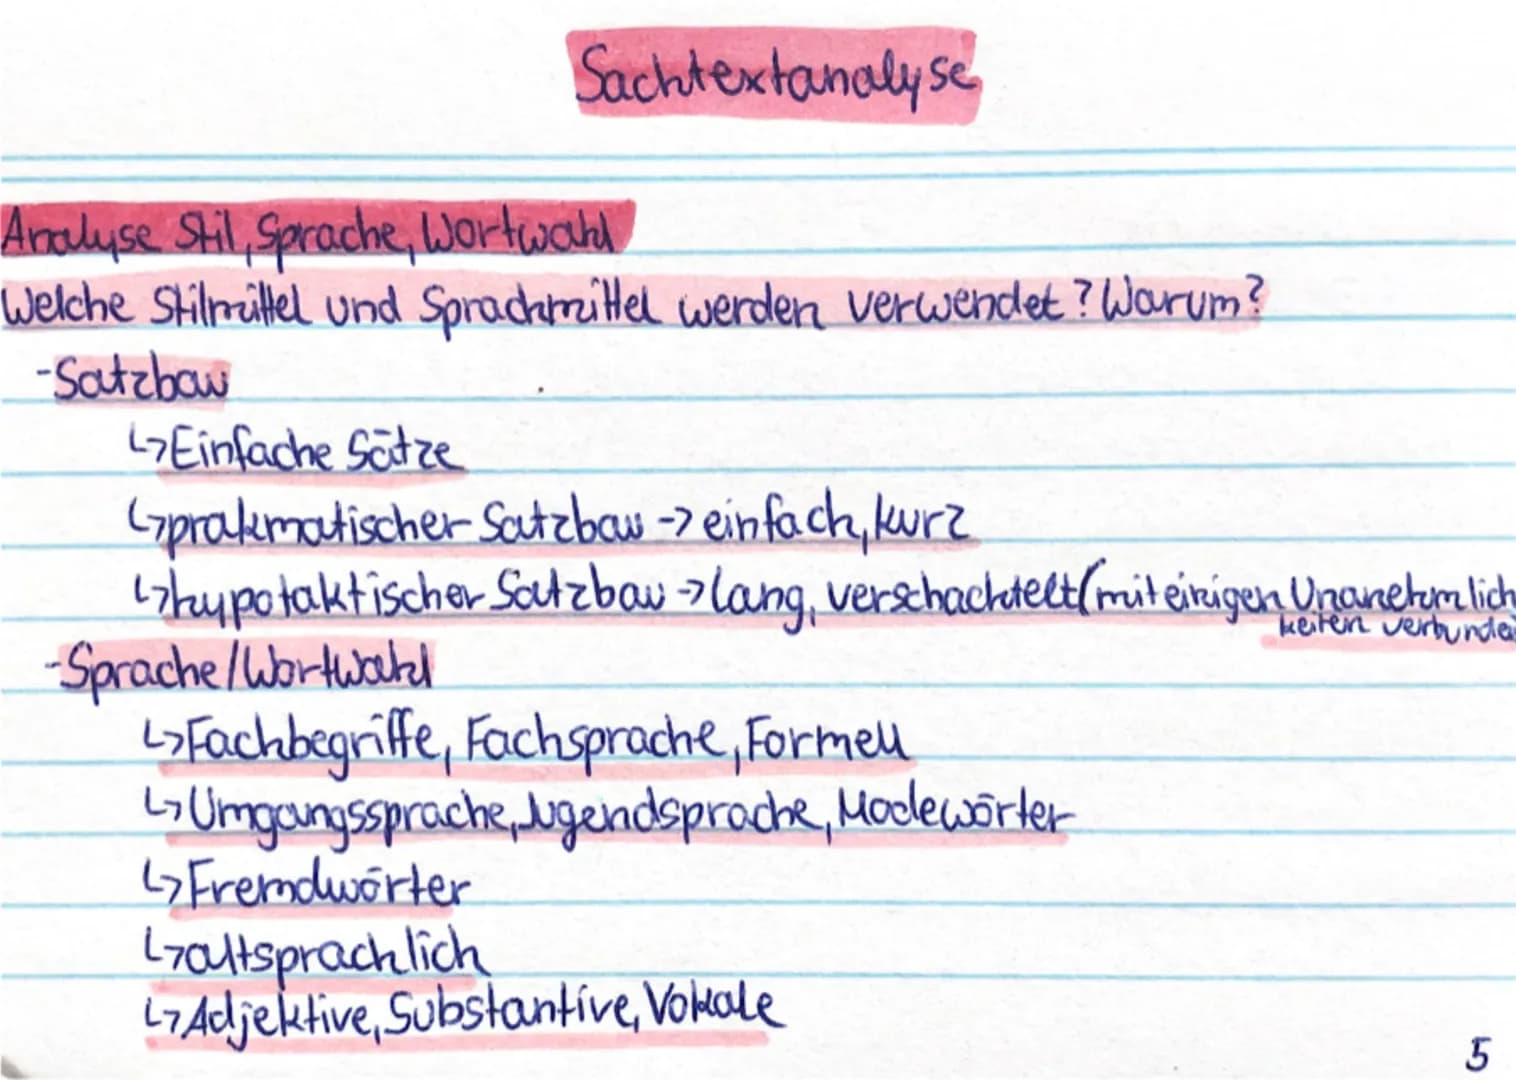 Sachtextanalyse
Analyse Stil, Sprache, Wortwahl
Welche Stilmittel und Sprachmittel werden verwendet? Warum?
-Satzbau
↳Einfache Sätze
↳prakmatischer Satzbau -> einfach, kurz
↳hypotaktischer Satzbau -> lang, verschachtelt (mit einigen Unanehmlich
keiten verbunden
-Sprache/Wortwahl
↳Fachbegriffe, Fachsprache, Formell
↳Umgangssprache, Jugendsprache, Modewörter
↳Fremdwörter
↳altsprachlich
↳Adjektive, Substantive, Vokale
5